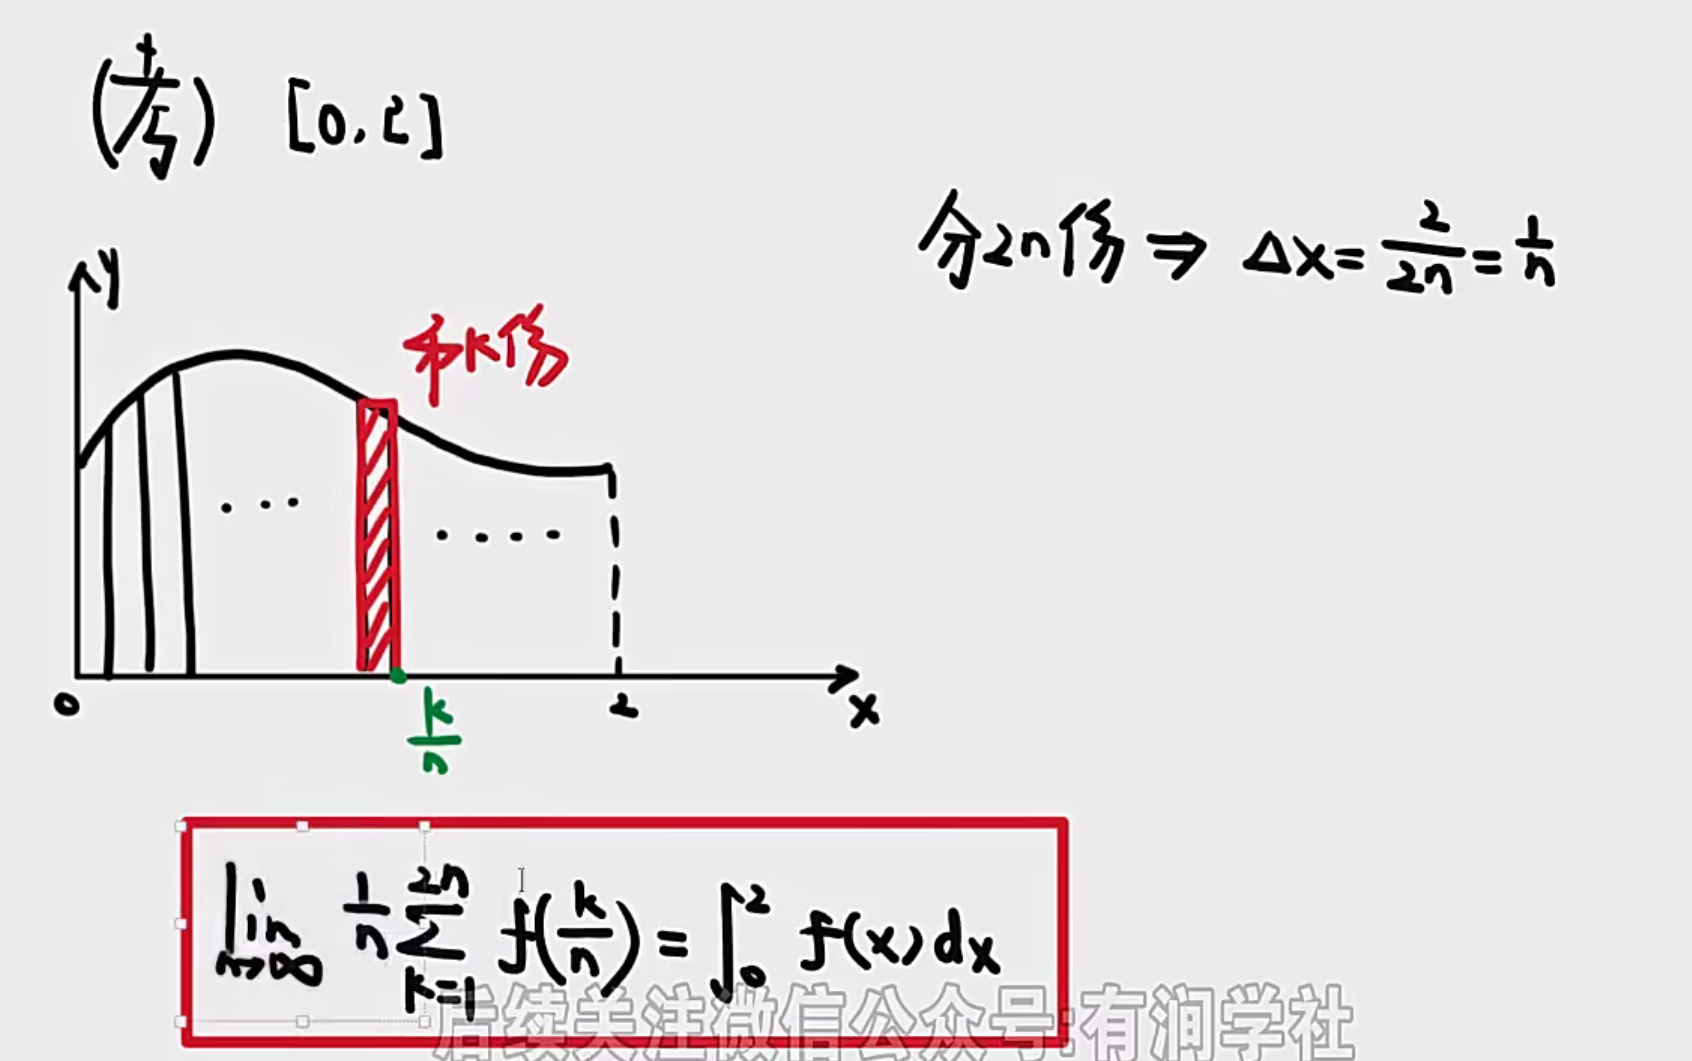 (考) [0,2]
分2n份 ⇒ Δx = 2/2n = 1/n
y
第k份
0
2
x
k/n
lim n→∞ 1/n ∑ k=1 2n f(k/n) = ∫₀² f(x) dx
后续关注微信公众号:有润学社